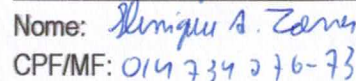 Nome: Henrique A. Zanin
CPF/MF: 014 734 276-73